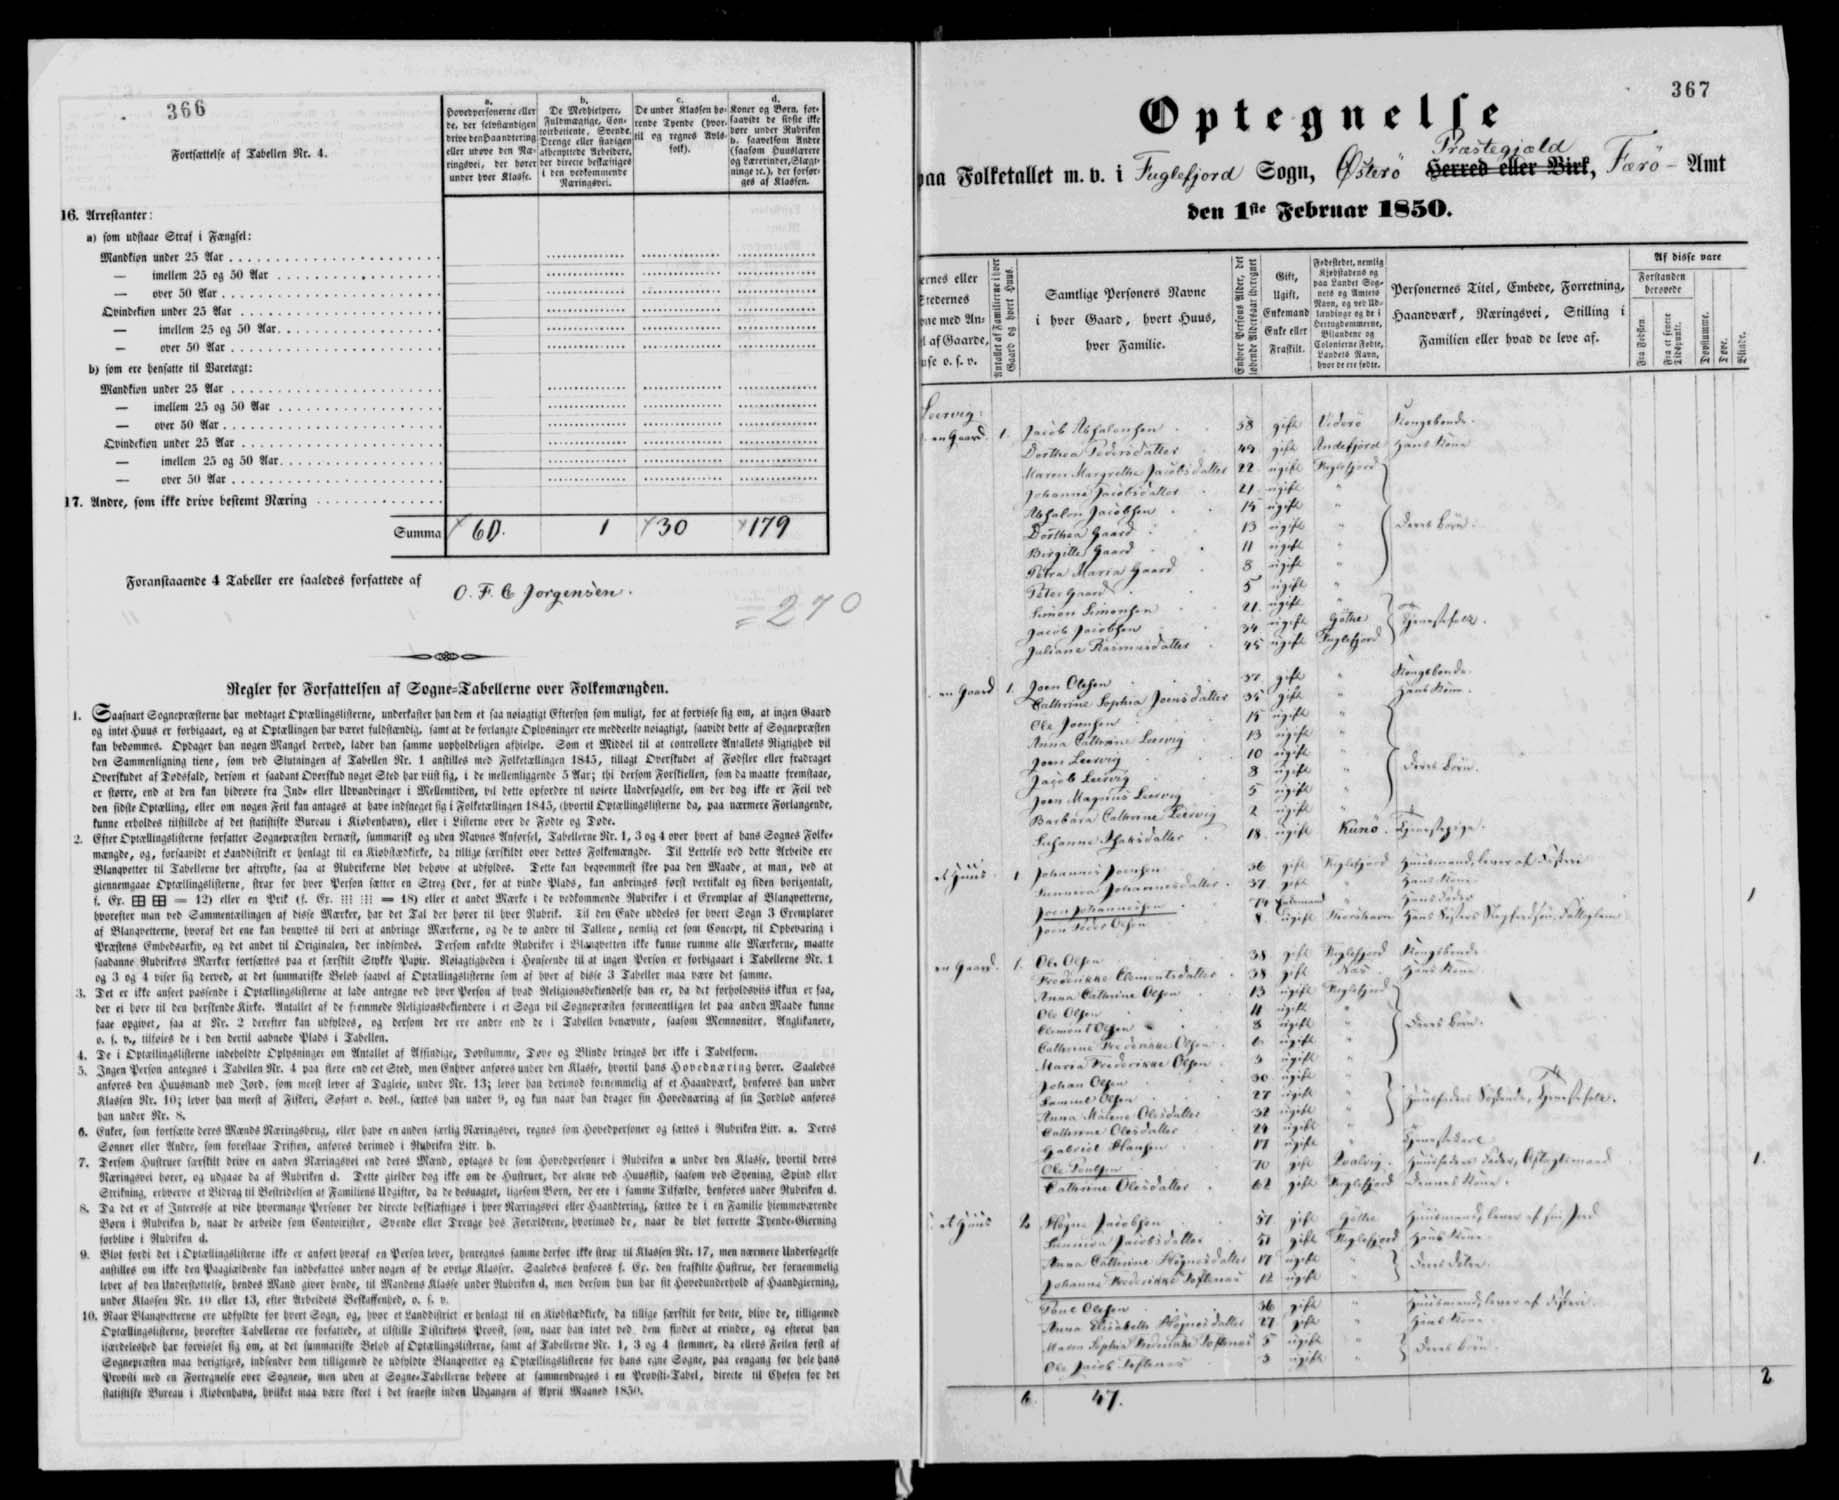 366
Fortsættelse af Tabellen Nr. 4.
a.
Hovedpersonerne eller
de, der selvstændigen
drive den Haandtering
eller udøve den Næ-
ringsvei, der hører
under hver Klasse.
b.
De Medhjelpere,
Fuldmægtige, Con-
toirbetiente, Svende,
Drenge eller stadigen
afbenyttede Arbeidere,
der directe beskæftiges
i den vedkommende
Næringsvei.
c.
De under Klassen hø-
rende Tyende (hvor-
til og regnes Avls-
folk).
d.
Koner og Børn, for-
saavidt de sidste ikke
høre under Rubriken
b. saavelsom Andre
(saasom Huuslærere
og Lærerinder, Slægt-
ninge ꝛc.), der forsør-
ges af Klassen.
16. Arrestanter:
a) som udstaae Straf i Fængsel:
Mandkiøn under 25 Aar
— imellem 25 og 50 Aar
— over 50 Aar
Qvindekiøn under 25 Aar
— imellem 25 og 50 Aar
— over 50 Aar
b) som ere hensatte til Varetægt:
Mandkiøn under 25 Aar
— imellem 25 og 50 Aar
— over 50 Aar
Qvindekiøn under 25 Aar
— imellem 25 og 50 Aar
— over 50 Aar
17. Andre, som ikke drive bestemt Næring
Summa 60. 1 30 179
Foranstaaende 4 Tabeller ere saaledes forfattede af O. F. C Jorgensen.
= 270
Regler for Forfattelsen af Sogne-Tabellerne over Folkemængden.
1. Saasnart Sognepræsterne har modtaget Optællingslisterne, underkaster han dem et saa nøiagtigt Eftersyn som muligt, for at forvisse sig om, at ingen Gaard
og intet Huus er forbigaaet, og at Optællingen har været fuldstændig, samt at de forlangte Oplysninger ere meddeelte nøiagtigt, saavidt dette af Sognepræsten
kan bedømmes. Opdager han nogen Mangel derved, lader han samme uopholdeligen afhjelpe. Som et Middel til at controllere Antallets Rigtighed vil
den Sammenligning tiene, som ved Slutningen af Tabellen Nr. 1 anstilles med Folketællingen 1845, tillagt Overskudet af Fødsler eller fradraget
Overskudet af Dødsfald, dersom et saadant Overskud noget Sted har viist sig, i de mellemliggende 5 Aar; thi dersom Forskiellen, som da maatte fremstaae,
er større, end at den kan hidrøre fra Ind- eller Udvandringer i Mellemtiden, vil dette opfordre til nøiere Undersøgelse, om der dog ikke er Feil ved
den sidste Optælling, eller om nogen Feil kan antages at have indsneget sig i Folketællingen 1845, (hvortil Optællingslisterne da, paa nærmere Forlangende,
kunne erholdes tilstillede af det statistiske Bureau i Kiøbenhavn), eller i Listerne over de Fødte og Døde.
2. Efter Optællingslisterne forfatter Sognepræsten dernæst, summarisk og uden Navnes Anførsel, Tabellerne Nr. 1, 3 og 4 over hvert af hans Sognes Folke-
mængde, og, forsaavidt et Landdistrikt er henlagt til en Kiøbstædkirke, da tillige særskildt over dettes Folkemængde. Til Lettelse ved dette Arbeide ere
Blanqvetter til Tabellerne her aftrykte, saa at Rubrikerne blot behøve at udfyldes. Dette kan beqvemmest skee paa den Maade, at man, ved at
giennemgaae Optællingslisterne, strax for hver Person sætter en Streg (der, for at vinde Plads, kan anbringes først vertikalt og siden horizontalt,
f. Ex. ⊞ ⊞ = 12) eller en Prik (f. Ex. ⁝⁝⁝ ⁝⁝⁝ = 18) eller et andet Mærke i de vedkommende Rubriker i et Exemplar af Blanqvetterne,
hvorefter man ved Sammentællingen af disse Mærker, har det Tal der hører til hver Rubrik. Til den Ende uddeles for hvert Sogn 3 Exemplarer
af Blanqvetterne, hvoraf det ene kan benyttes til deri at anbringe Mærkerne, og de to andre til Tallene, nemlig eet som Concept, til Opbevaring i
Præstens Embedsarkiv, og det andet til Originalen, der indsendes. Dersom enkelte Rubriker i Blanqvetten ikke kunne rumme alle Mærkerne, maatte
saadanne Rubrikers Mærker fortsættes paa et særskilt Stykke Papir. Nøiagtigheden i Henseende til at ingen Person er forbigaaet i Tabellerne Nr. 1
og 3 og 4 viser sig derved, at det summariske Beløb saavel af Optællingslisterne som af hver af disse 3 Tabeller maa være det samme.
3. Det er ikke anseet passende i Optællingslisterne at lade antegne ved hver Person af hvad Religionsbekiendelse han er, da det forholdsviis ikkun er faa,
der ei høre til den herskende Kirke. Antallet af de fremmede Religionsbekiendere i et Sogn vil Sognepræsten formeentligen let paa anden Maade kunne
faae opgivet, saa at Nr. 2 derefter kan udfyldes, og dersom der ere andre end de i Tabellen benævnte, saasom Mennoniter, Anglikanere,
o. s. v., tilføies de i den dertil aabnede Plads i Tabellen.
4. De i Optællingslisterne indeholdte Oplysninger om Antallet af Affindige, Døvstumme, Døve og Blinde bringes her ikke i Tabelform.
5. Ingen Person antegnes i Tabellen Nr. 4 paa flere end eet Sted, men Enhver anføres under den Klasse, hvortil hans Hovednæring hører. Saaledes
anføres den Huusmand med Jord, som meest lever af Dagleie, under Nr. 13; lever han derimod fornemmelig af et Haandværk, henføres han under
Klassen Nr. 10; lever han meest af Fiskeri, Søfart o. desl., sættes han under 9, og kun naar han drager sin Hovednæring af sin Jordlod anføres
han under Nr. 8.
6. Enker, som fortsætte deres Mænds Næringsbrug, eller have en anden særlig Næringsvei, regnes som Hovedpersoner og sættes i Rubriken Litr. a. Deres
Sønner eller Andre, som forestaae Driften, anføres derimod i Rubriken Litr. b.
7. Dersom Hustruer særskilt drive en anden Næringsvei end deres Mænd, optages de som Hovedpersoner i Rubriken a under den Klasse, hvortil deres
Næringsvei hører, og udgaae da af Rubriken d. Dette gielder dog ikke om de Hustruer, der alene ved Huusflid, saasom ved Spening, Spind eller
Strikning, erhverve et Bidrag til Bestridelsen af Familiens Udgifter, da de desuagtet, ligesom Børn, der ere i samme Tilfælde, henføres under Rubriken d.
8. Da det er af Interesse at vide hvormange Personer der directe beskiæftiges i hver Næringsvei eller Haandtering, sættes de i en Familie hjemmeværende
Børn i Rubriken b, naar de arbeide som Contoirister, Svende eller Drenge hos Forældrene, hvorimod de, naar de blot forrette Tyende-Gierning
forblive i Rubriken d.
9. Blot fordi det i Optællingslisterne ikke er anført hvoraf en Person lever, henregnes samme derfor ikke strax til Klassen Nr. 17, men nærmere Undersøgelse
anstilles om ikke den Paagiældende kan indbefattes under nogen af de øvrige Klasser. Saaledes henføres f. Ex. den fraskilte Hustrue, der fornemmelig
lever af den Understøttelse, hendes Mand giver hende, til Mandens Klasse under Rubriken d, men dersom hun har sit Hovedunderhold af Haandgierning,
under Klassen Nr. 10 eller 13, efter Arbeidets Beskaffenhed, o. s. v.
10. Naar Blanqvetterne ere udfyldte for hvert Sogn, og, hvor et Landdistrict er henlagt til en Kiøbstædkirke, da tillige særskilt for dette, blive de, tilligemed
Optællingslisterne, hvorefter Tabellerne ere forfattede, at tilstille Distriktets Provst, som, naar han intet ved dem finder at erindre, og efterat han
isærdeleshed har forvisset sig om, at det summariske Beløb af Optællingslisterne, samt af Tabellerne Nr. 1, 3 og 4 stemmer, da ellers Feilen først af
Sognepræsten maa berigtiges, indsender dem tilligemed de udfyldte Blanqvetter og Optællingslisterne for hans egne Sogne, paa eengang for hele hans
Provsti med en Fortegnelse over Sognene, men uden at Sogne-Tabellerne behøve at sammendrages i en Provsti-Tabel, directe til Chefen for det
statistiske Bureau i Kiøbenhavn, hvilket maa være skeet i det seneste inden Udgangen af April Maaned 1850.
367
Optegnelse
Præstegjæld
paa Folketallet m. v. i Fuglefjord Sogn, Østerö Herred eller Birk, Færö- Amt
den 1ste Februar 1850.
ernes eller
stedernes
vne med An-
l af Gaarde,
use o. s. v.
Antallet af Familierne i hver
Gaard og hvert Huus.
Samtlige Personers Navne
i hver Gaard, hvert Huus,
hver Familie.
Enhver Persons Alder, det
løbende Aldersaar iberegnet
Gift,
Ugift,
Enkemand
Enke eller
Fraskilt.
Fødestedet, nemlig
Kjøbstadens og
paa Landet Sog-
nets og Amtets
Navn, og ved Ud-
lændinge og de i
Hertugdømmerne,
Bilandene og
Colonierne Fødte,
Landets Navn,
hvor de ere fødte.
Personernes Titel, Embede, Forretning,
Haandværk, Næringsvei, Stilling i
Familien eller hvad de leve af.
Af disse vare
Forstanden
berøvede
Fra Fødslen.
Fra et senere
Tidspunkt.
Døvstumme.
Døve.
Blinde.
Leervig:
en Gaard. 1. Jacob Absalonsen 58 gift Viderö Kongsbonde.
Dorthea Pedersdatter 49 gift Andefjord Hans Kone
Maren Margrethe Jacobsdatter 22 ugift Fuglefjord
Johanne Jacobsdatter 21 ugift "
Absalon Jacobsen 15 ugift " Deres Börn.
Dorthea Gaard 13 ugift "
Birgitte Gaard 11 ugift "
Petra Maria Gaard 8 ugift "
Peter Gaard 5 ugift "
Simon Simonsen 21 ugift "
Jacob Jacobsen 34 ugift Göthe Tjenestefolk.
Juliane Rasmusdatter 45 ugift Fuglefjord
en Gaard 1. Joen Olesen 37 gift " Kongsbonde.
Cathrine Sophia Joensdatter 35 gift " Hans Kone.
Ole Joensen 15 ugift "
Anna Cathrine Leervig 13 ugift "
Joen Leervig 10 ugift "
Jacob Leervig 8 ugift " Deres Börn.
Joen Magnus Leervig 5 ugift "
Barbara Cathrine Leervig 2 ugift "
Susanne 18 ugift Kunö. Tjenestepige.
et Huus. 1 Johannes Joensen 36 gift Fuglefjord Huusmand, lever af Fiskeri
Sunneva Johannesdatter 37 gift " Hans Kone
Joen Johannesen 74 Enkemand " Hans Fader 1
Joen Peder Olsen 8 ugift Thorshavn Hans Sösters
en Gaard. 1. Ole Olsen 38 gift Fuglefjord Kongsbonde
Frederikke Clementsdatter 38 gift Næs Hans Kone
Anna Cathrine Olsen 13 ugift Fuglefjord
Ole Olsen 11 ugift "
Clement Olsen 8 ugift " Deres Börn.
Cathrine Frederikke Olsen 6 ugift "
Maria Frederikke Olsen 3 ugift "
Johan Olsen 30 ugift "
Samuel Olsen 27 ugift " Huusfaders Södskende, Tjenestefolk.
Anna Malene Olesdatter 32 ugift "
Cathrine Olesdatter 24 ugift "
Gabriel Hansen 17 ugift " Tjenestekarl
Ole Poulsen 70 gift Qvalvig Huusfaders Fader, Aftægtsmand 1.
Cathrine Olesdatter 62 gift Fuglefjord Dennes Kone.
et Huus 2 Högne Jacobsen 57 gift Göthe Huusmand, lever af sin Jord
Sunneva Jacobsdatter 51 gift Fuglefjord Hans Kone
Anna Cathrine Högnesdatter 17 ugift " Deres Dötre.
Johanne Frederikke Toftenæs 12 ugift "
Poul Olesen 36 gift " Huusmand, lever af Fiskeri
Anna Elisabeth Högnesdatter 27 gift " Hans Kone.
Maren Sophie Frederikke Toftenæs 5 ugift " Deres Börn.
Ole Jacob Toftenæs 3 ugift "
6. 47. 2